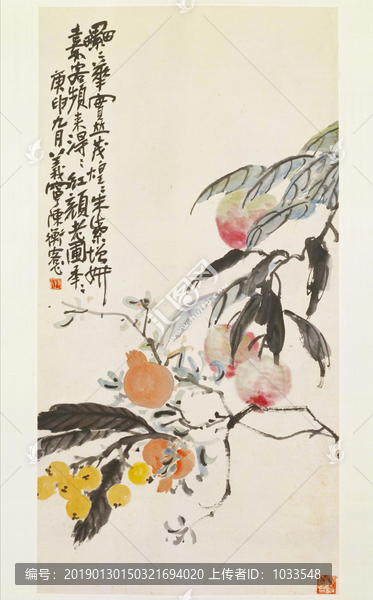 纍〻華實並茂煌〻朱紫增妍
素客頻來得〻紅顏老圃秊〻
庚申九月義寧陳衡愙
编号：20190130150321694020 上传者ID：1033548